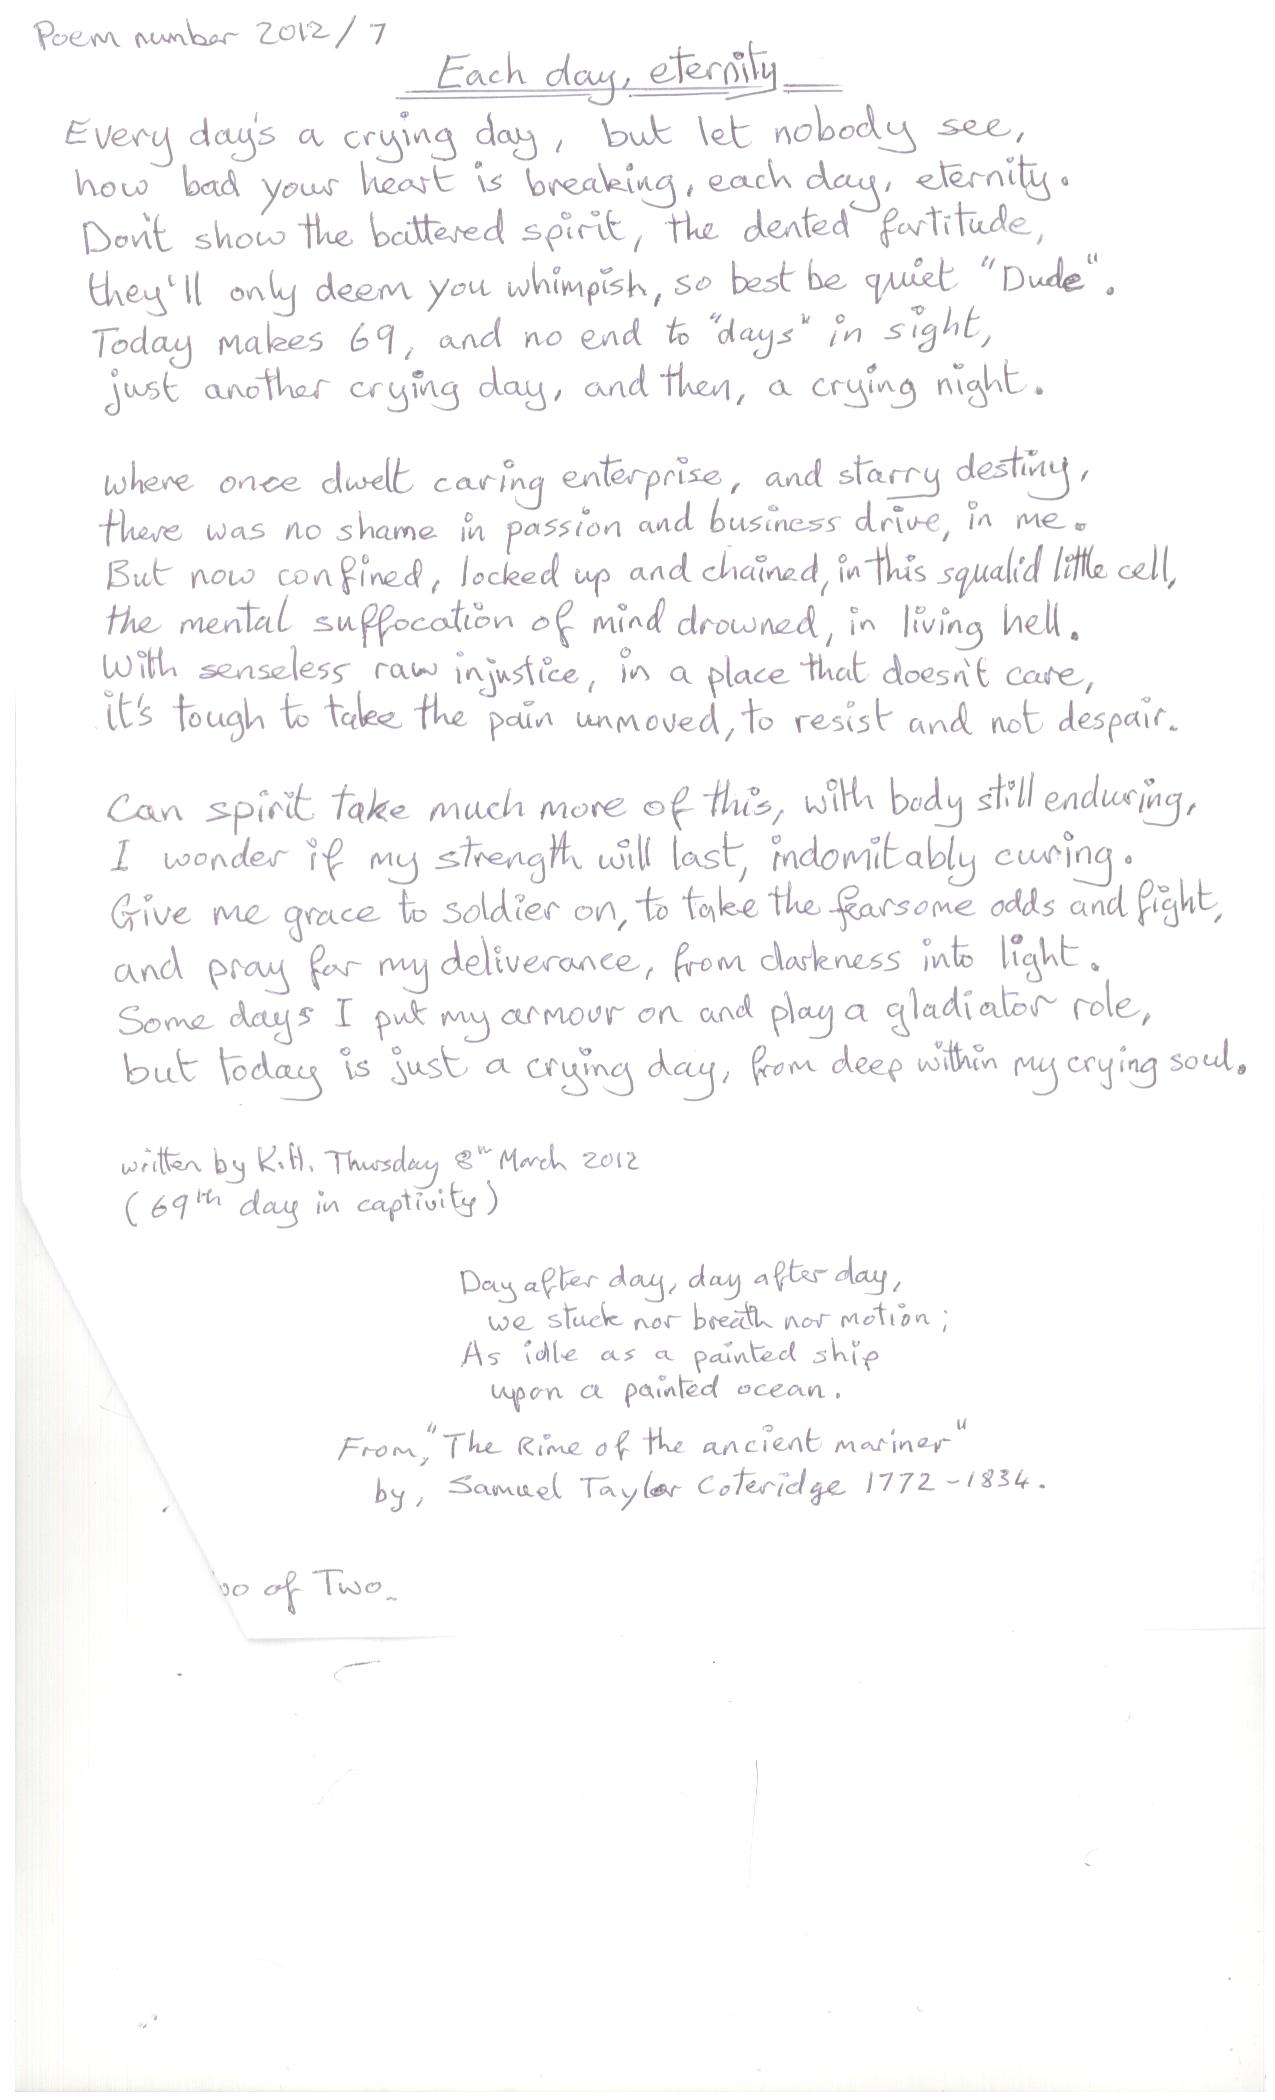 Poem number 2012/7
Each day, eternity
Every day's a crying day, but let nobody see,
how bad your heart is breaking, each day, eternity.
Don't show the battered spirit, the dented fortitude,
they'll only deem you whimpish, so best be quiet "Dude".
Today makes 69, and no end to "days" in sight,
just another crying day, and then, a crying night.
where once dwelt caring enterprise, and starry destiny,
there was no shame in passion and business drive, in me.
But now confined, locked up and chained, in this squalid little cell,
the mental suffocation of mind drowned, in living hell.
With senseless raw injustice, in a place that doesn't care,
it's tough to take the pain unmoved, to resist and not despair.
Can spirit take much more of this, with body still enduring,
I wonder if my strength will last, indomitably curing.
Give me grace to soldier on, to take the fearsome odds and fight,
and pray for my deliverance, from darkness into light.
Some days I put my armour on and play a gladiator role,
but today is just a crying day, from deep within my crying soul.
written by K.H. Thursday 8th March 2012
(69th day in captivity)
Day after day, day after day,
we stuck nor breath nor motion;
As idle as a painted ship
upon a painted ocean.
From, "The Rime of the ancient mariner"
by, Samuel Taylor Coleridge 1772-1834.
of Two.